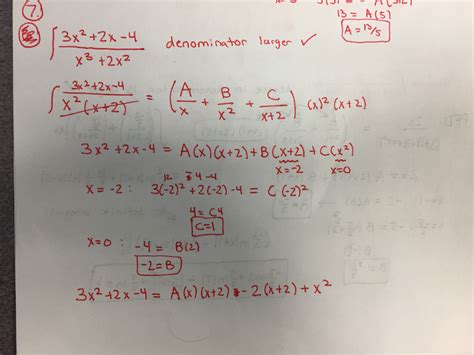 13 = A(5)
A = 13/5
7.
∫ 3x² + 2x - 4 / x³ + 2x² denominator larger ✓
∫ 3x² + 2x - 4 / x² (x + 2) = ( A/x + B/x² + C/x+2 ) (x)² (x+2)
3x² + 2x - 4 = A(x)(x+2) + B(x+2) + C(x²)
x = -2 x = 0
x = -2 : 3(-2)² + 2(-2) - 4 = C(-2)²
4 = C4
C = 1
x = 0 : -4 = B(2)
-2 = B
3x² + 2x - 4 = A(x)(x+2) - 2(x+2) + x²